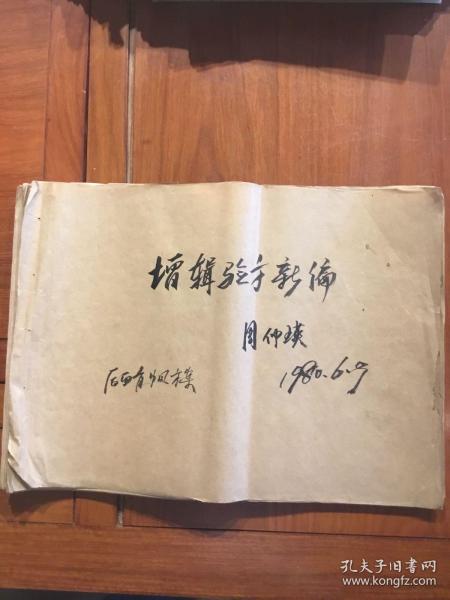 增辑验方新编
周仲瑛
后面有
1980.6.9
孔夫子旧书网
www.kongfz.com